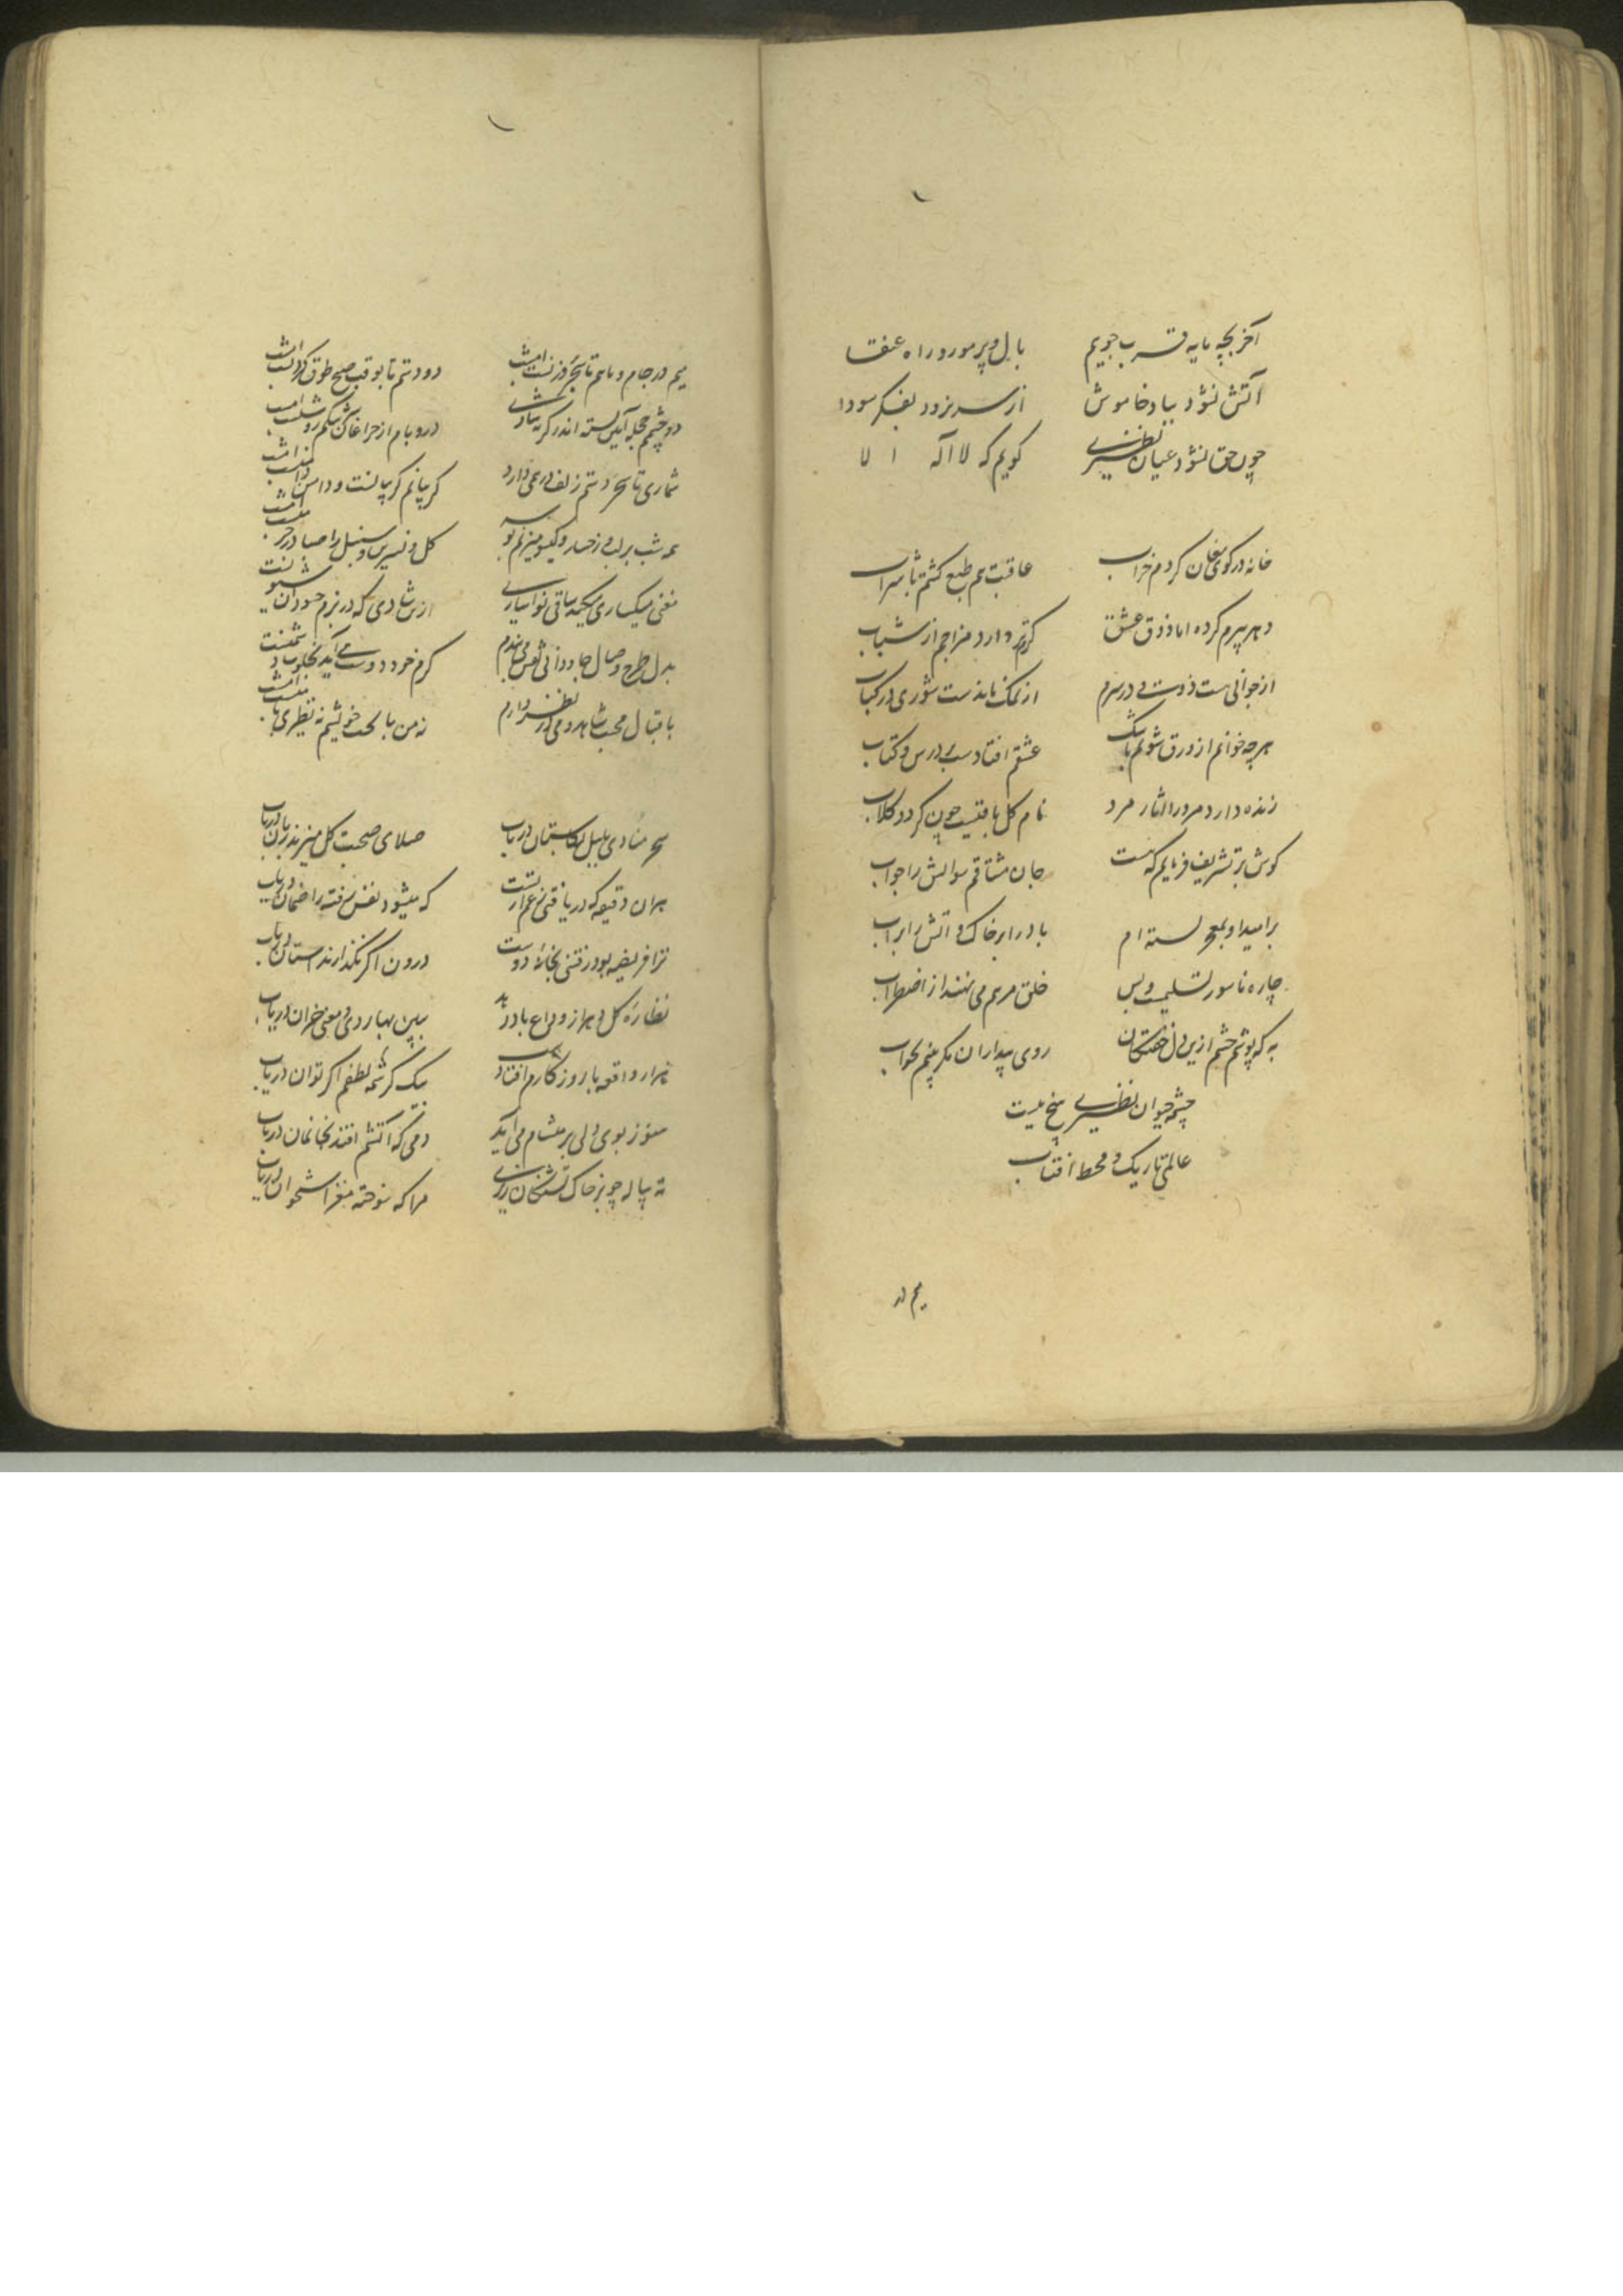 آخر بچه مایه قرب جویم بابل و پر مور و راه عنقا
آتش نشود بباد خاموش از سر نرود بفکر سودا
چون حق نشود عیان نظیری کویم که لا اله ا لا
خانه در کوی مغان کردم خراب عاقبت هم طبع کشتم با شراب
دهر پیرم کرده اما ذوق عشق کرمتر دارد مزاجم از شباب
از جوانی هست ذوقی در سرم از نمک ماندست شوری در کباب
هرچه خوانم از ورق شویم باشک عشقم افتاد در سر درس و کتاب
زنده دارد مرد را آثار مرد نام کل باقیست چون کردد کلاب
کوش بر تشریف فرمایم که هست جان مشتاقم سوالش را جواب
بر امید او بمهر بسته ام باد را بر خاک و آتش را بر آب
چاره ناسور تسلیمست و بس خلق مرهم می نهند از اضطراب
به که پوشم چشم ازین دل خفتکان روی بیداران مکر بینم بخواب
چشمه حیوان نظیری سنخ نیست
عالمی تاریک و محط افتاب
میم در
میم در جام و ماهم تا سحر در منزلست امشب دو دستم تا بوقت صبح طوق کردنست امشب
دو چشمم محله آیین بسته اندر کریه شادی در و بام از چراغان سرشکم روشنست امشب
شماری تا سحر دستم ز لف درهمی دارد کریبانم کریبانست و دامن دامنست امشب
همه شب بر لب و رخسار و کیسو میزنم بوسه کل و نسرین و سنبل را صبا در خرمنست امشب
مغنی میکساری میکند ساقی نواسازی ازین شادی که در بزم حسودان شیونست
بدل طرح وصال جاودانی نقش می بندم کرم خود دوست می آید بخلوت دشمنست
باقبال محبت شاهد و می در نظر دارم نه من با بخت خویشم نه نظیری با منست امشب
سحر منادی بلبل بکلستان دریاب صلای صحبت کل میزند زبان دریاب
هران دقیقه که دریافتی ز عمر آنست که میشود نفس رفته را ضمان دریاب
ترا فریضه بود رفتن بخانه دوست درون اکر نکذارند استان دریاب
نظاره کل و هزار وداع باد دزد ببین بهار دی و معنی خزان دریاب
هزار واقعه با روز کارم افتاد بیک کرشمه لطفم اکر توان دریاب
هنوز بوی دلی بر مشام می آید دمی که آتشم افتد بخانمان دریاب
ته پیاله چو بر خاک تشنکان ریزی مرا که سوخته مغز استخوان دریاب